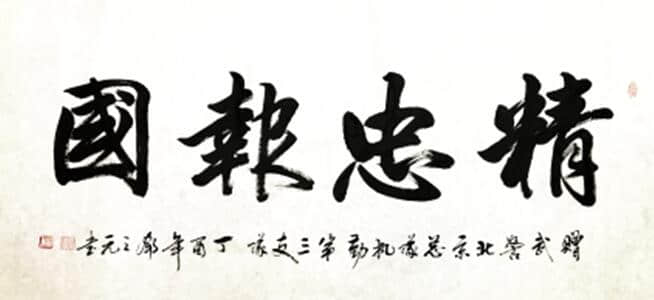 精忠報國
贈武警北京总隊机動第三支隊 丁酉年 之元書